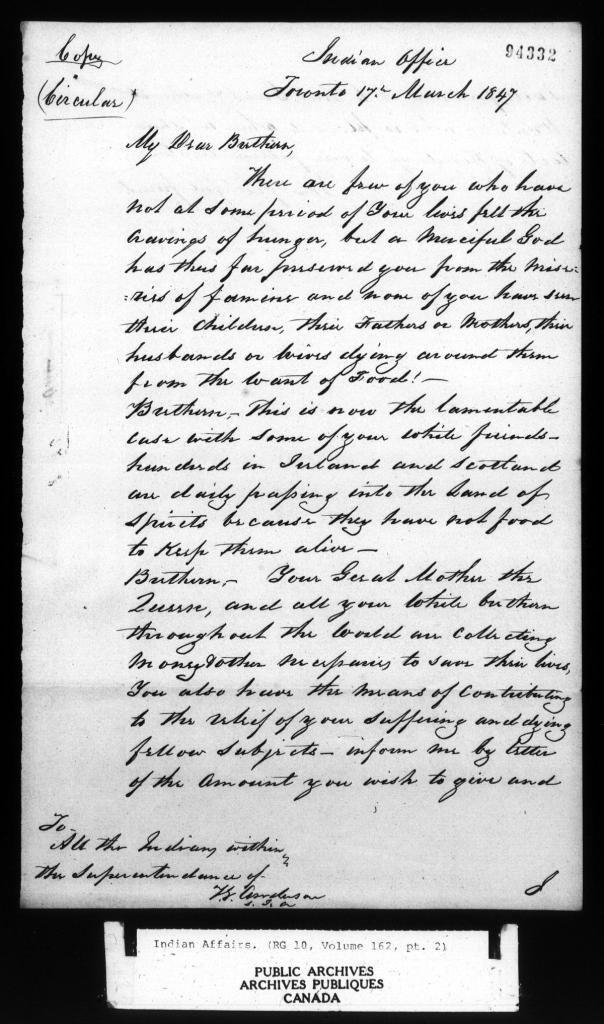 Copy
(Circular)
94332
Indian Office
Toronto 17th March 1847
My Dear Brethern,
There are few of you who have
not at some period of Your lives felt the
cravings of hunger, but a Merciful God
has thus far preserved you from the mise-
=ries of famine and none of you have seen
their Children, their Fathers or Mothers, their
husbands or Wives dying around them
from the want of Food! —
Brethern, — this is now the lamentable
case with some of your white friends —
hundreds in Ireland and Scotland
are daily passing into the Land of
Spirits because they have not food
to Keep them alive —
Brethern, — Your Great Mother the
Queen, and all your White brethern
throughout the World are Collecting
Money & other necessaries to save their lives,
You also have the means of Contributing
to the relief of your suffering and dying
fellow subjects — inform me by letter
of the Amount you wish to give and
To
All the Indians within
the Superintendance of
T.G. Anderson
S.I.A
I
Indian Affairs. (RG 10, Volume 162, pt. 2)
PUBLIC ARCHIVES
ARCHIVES PUBLIQUES
CANADA